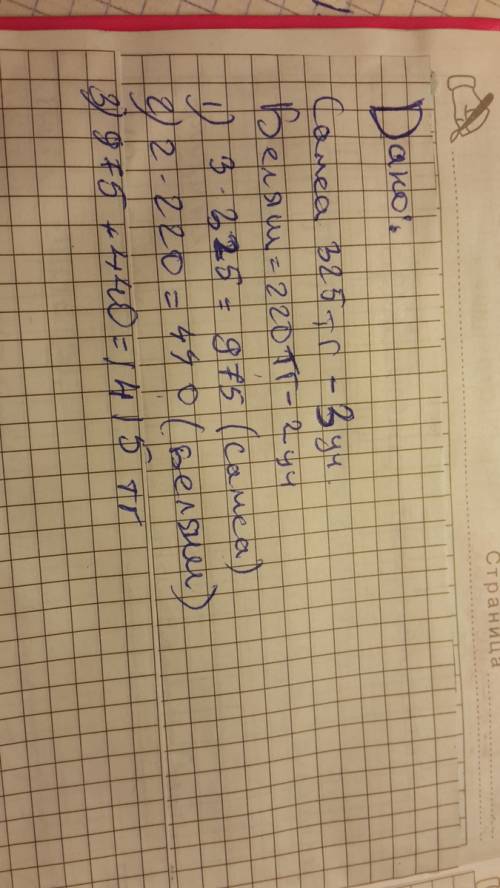 Страница
Дано:
Самса 325 тг - 3 уч.
Беляш = 220 тг - 2 уч
1) 3 · 325 = 975 (самса)
2) 2 · 220 = 440 (беляш)
3) 975 + 440 = 1415 тг